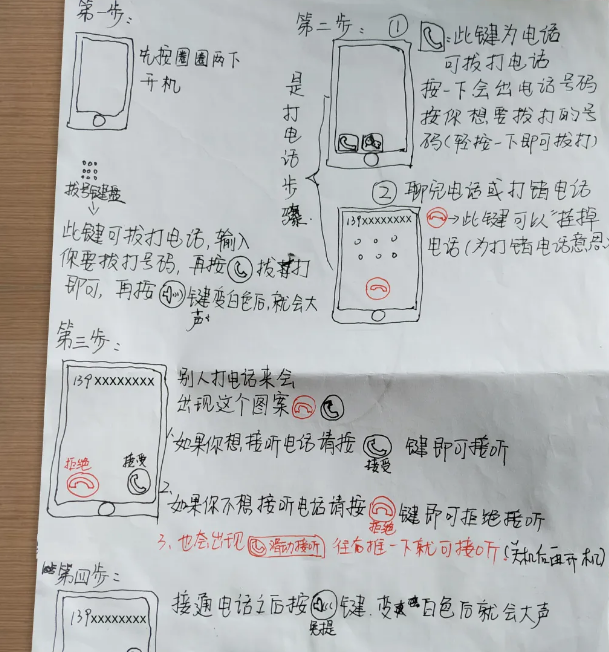 第一步:
先按圈圈两下
开机
拨号键盘
此键可拨打电话,输入
你要拨打号码,再按拨打
即可,再按键变白色后,就会大
声
第二步:
是打电话步骤.
①
:此键为电话
可拨打电话
按一下会出电话号码
按你想要拨打的号
码(轻按一下即可拨打)
② 聊完电话或打错电话
139xxxxxxxx
→此键可以"挂掉
电话(为打错电话意思
第三步:
139xxxxxxxx
拒绝
接受
别人打电话来会
出现这个图案
1、如果你想接听电话请按 键即可接听
接受
2、如果你不想接听电话请按 键即可拒绝接听
拒绝
3、也会出现 滑动接听 往右推一下就可接听(关机后再开机)
第四步:
139xxxxxxxx
接通电话之后按 键,变白色后就会大声
免提